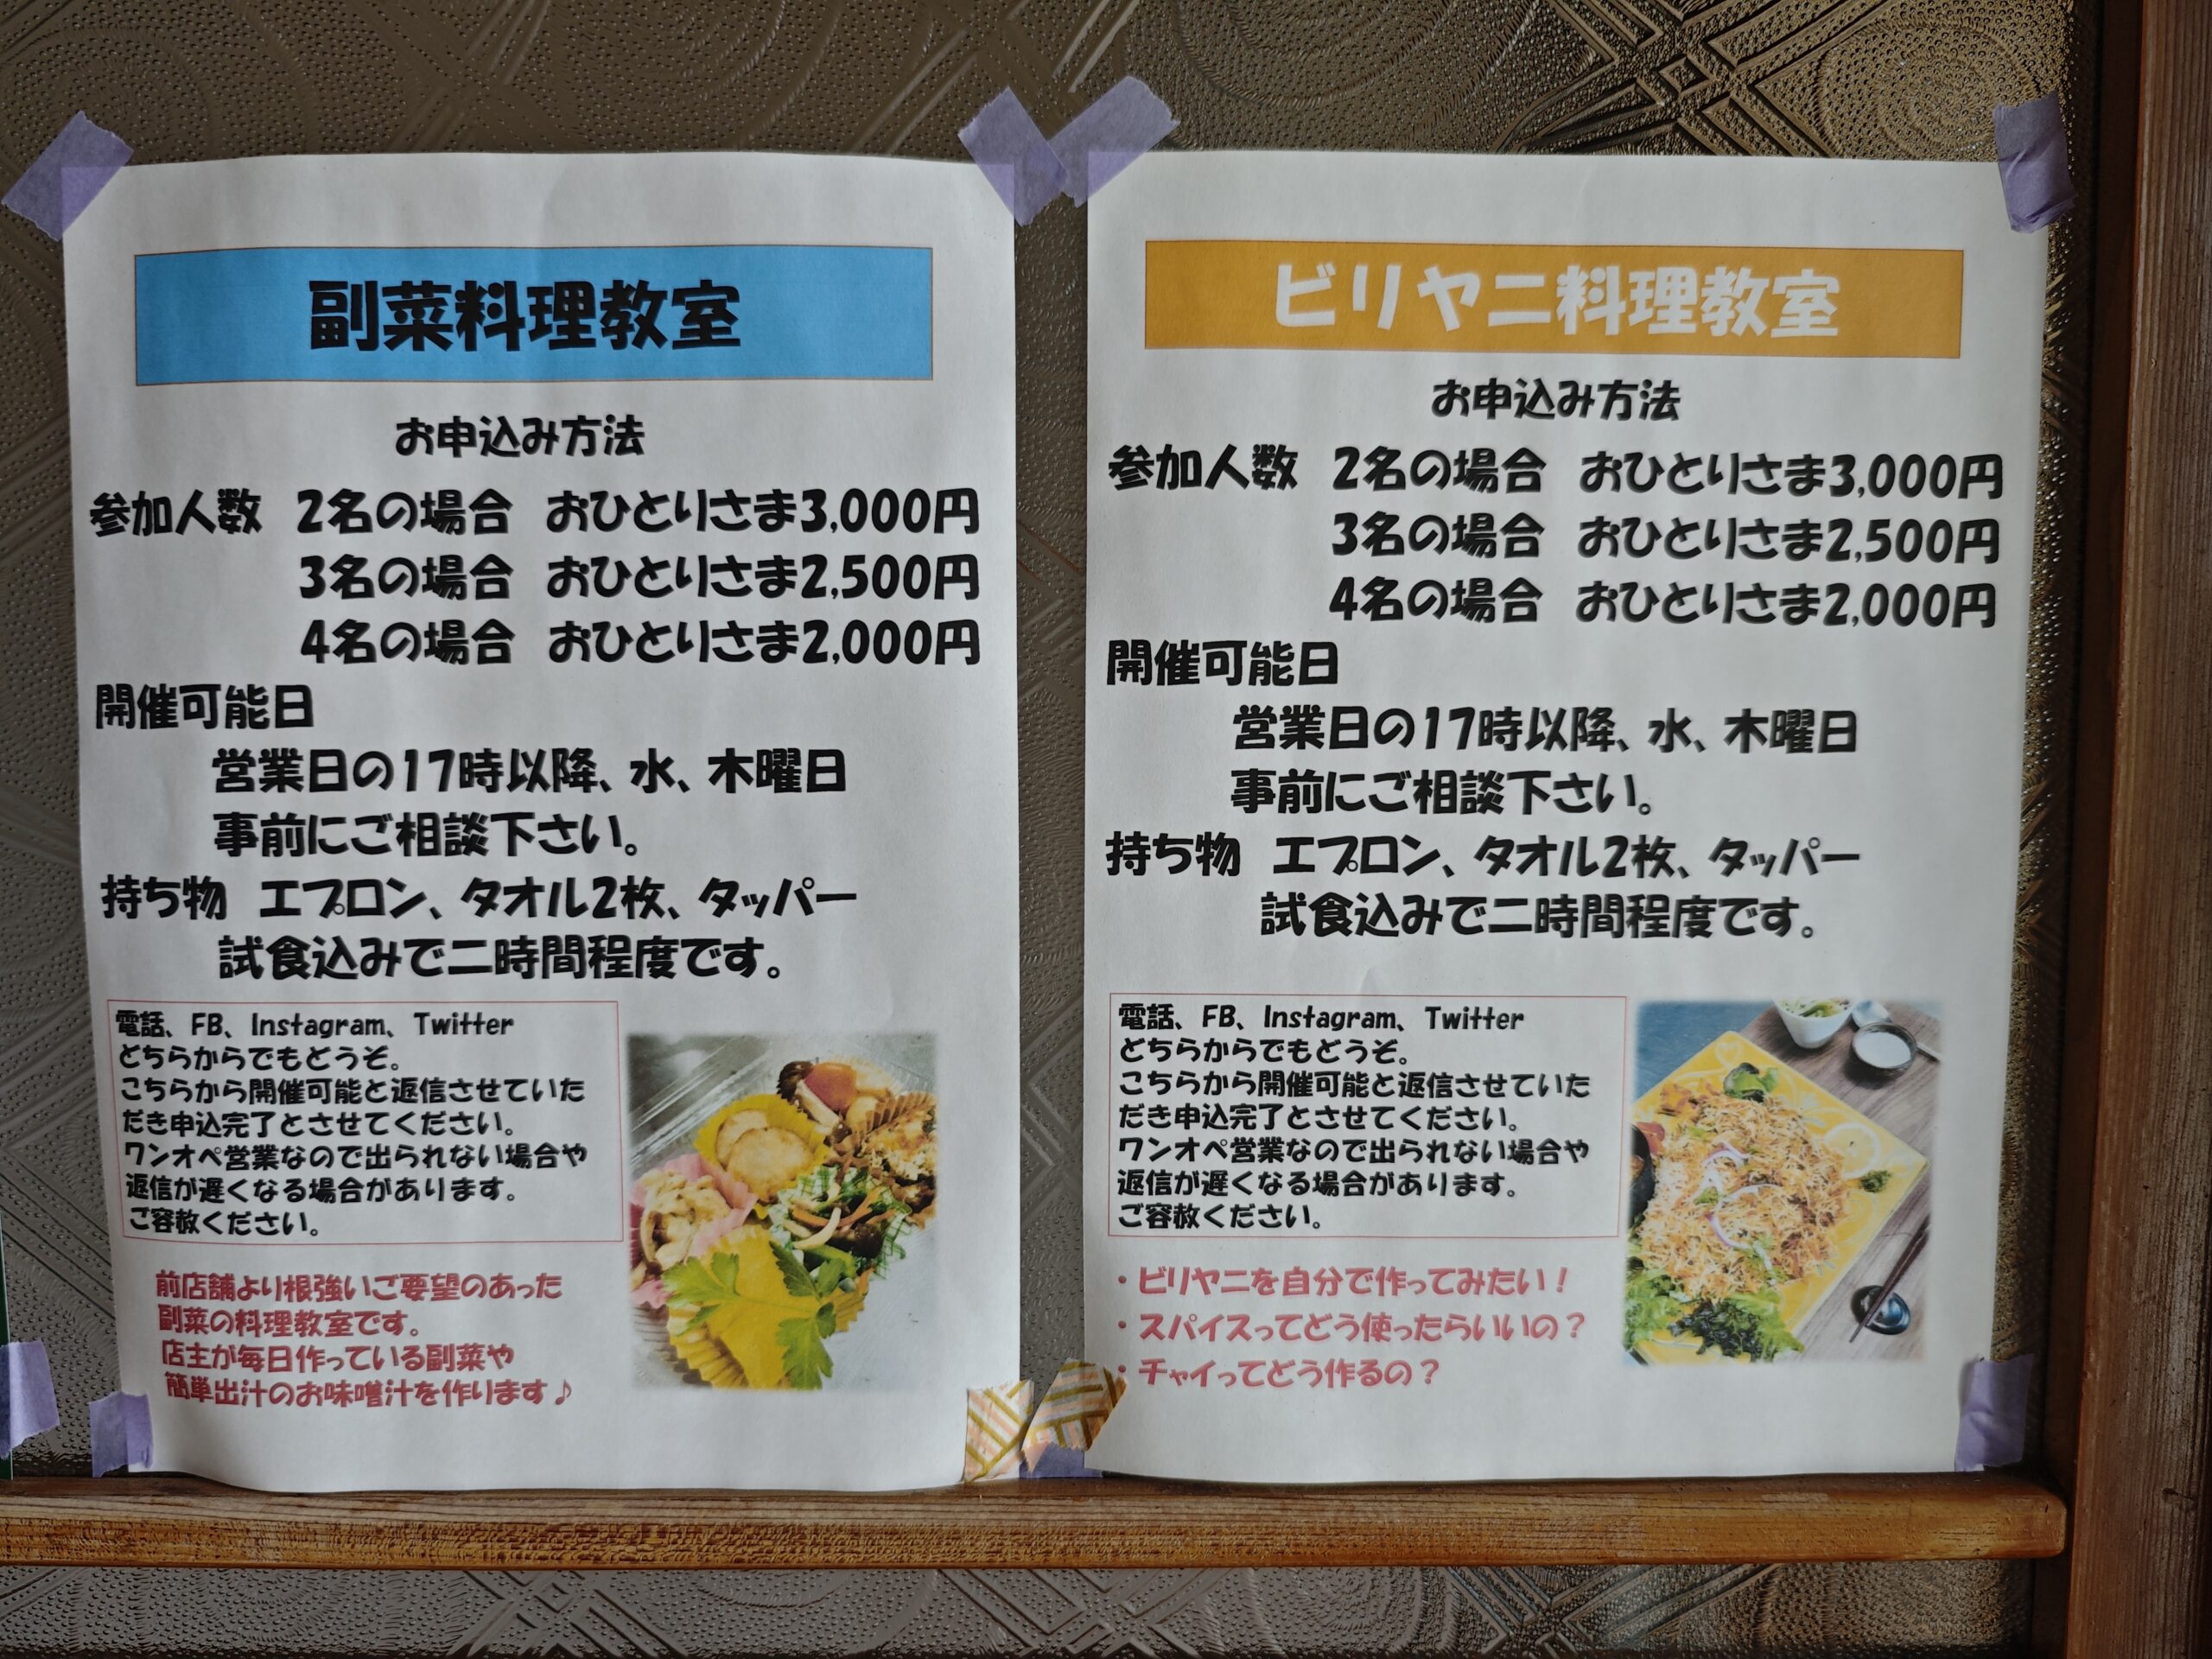 副菜料理教室
お申込み方法
参加人数 2名の場合 おひとりさま3,000円
3名の場合 おひとりさま2,500円
4名の場合 おひとりさま2,000円
開催可能日
営業日の17時以降、水、木曜日
事前にご相談下さい。
持ち物 エプロン、タオル2枚、タッパー
試食込みで二時間程度です。
電話、FB、Instagram、Twitter
どちらからでもどうぞ。
こちらから開催可能と返信させていた
だき申込完了とさせてください。
ワンオペ営業なので出られない場合や
返信が遅くなる場合があります。
ご容赦ください。
前店舗より根強いご要望のあった
副菜の料理教室です。
店主が毎日作っている副菜や
簡単出汁のお味噌汁を作ります♪
ビリヤニ料理教室
お申込み方法
参加人数 2名の場合 おひとりさま3,000円
3名の場合 おひとりさま2,500円
4名の場合 おひとりさま2,000円
開催可能日
営業日の17時以降、水、木曜日
事前にご相談下さい。
持ち物 エプロン、タオル2枚、タッパー
試食込みで二時間程度です。
電話、FB、Instagram、Twitter
どちらからでもどうぞ。
こちらから開催可能と返信させていた
だき申込完了とさせてください。
ワンオペ営業なので出られない場合や
返信が遅くなる場合があります。
ご容赦ください。
・ビリヤニを自分で作ってみたい！
・スパイスってどう使ったらいいの？
・チャイってどう作るの？